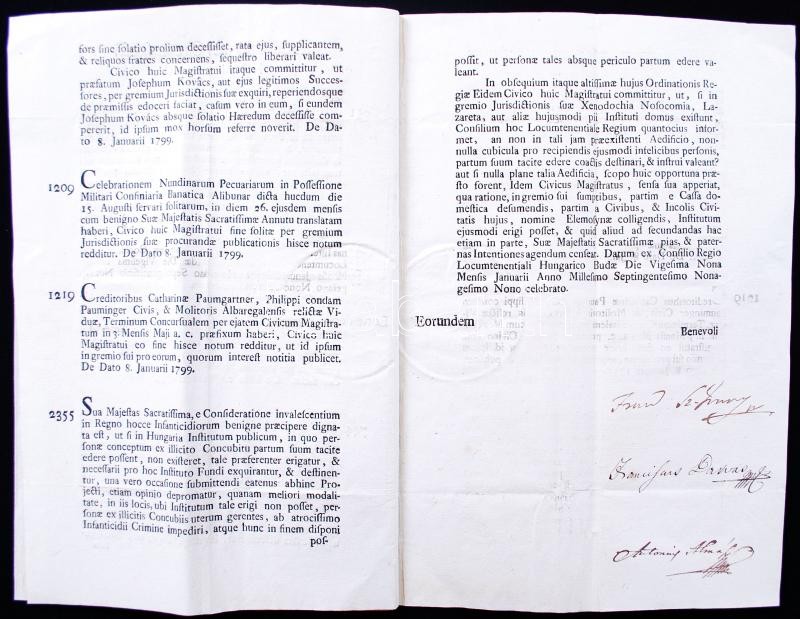 fors sine solatio prolium decessisset, rata ejus, supplicantem,
& reliquos fratres concernens, sequestro liberari valeat.
Civico huic Magistratui itaque committitur, ut
præfatum Josephum Kovács, aut ejus legitimos Succes-
sores, per gremium Jurisdictionis suæ exquiri, reperiendosque
de præmissis edoceri faciat, casum vero in eum, si eundem
Josephum Kovács absque solatio Hæredum decessisse com-
pererit, id ipsum mox horsum referre noverit. De Da-
to 8. Januarii 1799.
1209 Celebrationem Nundinarum Pecuariarum in Possessione
Militari Confiniaria Banatica Alibunar dicta hucdum die
15. Augusti servari solitarum, in diem 26. ejusdem mensis
cum benigno Suæ Majestatis Sacratissimæ Annutu translatam
haberi, Civico huic Magistratui fine solitæ per gremium
Jurisdictionis suæ procurandæ publicationis hisce notum
redditur. De Dato 8. Januarii 1799.
1219 Creditoribus Catharinæ Paumgartner, Philippi condam
Pauminger Civis, & Molitoris Albaregalensis relictæ Vi-
duæ, Terminum Concursualem per ejatem Civicum Magistra-
tum in 3. Mensis Maji a. c. præfixum haberi, Civico huic
Magistratui eo fine hisce notum redditur, ut id ipsum
in gremio sui pro eorum, quorum interest notitia publicet.
De Dato 8. Januarii 1799.
2355 Sua Majestas Sacratissima, e Consideratione invalescentium
in Regno hocce Infanticidiorum benigne præcipere digna-
ta est, ut si in Hungaria Institutum publicum, in quo per-
sonæ conceptum ex illicito Concubitu partum suum tacite
edere possent, non existeret, tale præferenter erigatur, &
necessarii pro hoc Instituto Fundi exquirantur, & destinen-
tur, una vero occasione submittendi eatenus abhinc Pro-
jecti, etiam opinio depromatur, quanam meliori modali-
tate, in iis locis, ubi Institutum tale erigi non posset, per-
sonæ ex illicitis Concubiis uterum gerentes, ab atrocissimo
Infanticidii Crimine impediri, atque hunc in finem disponi
pos-
possit, ut personæ tales absque periculo partum edere va-
leant.
In obsequium itaque altissimæ hujus Ordinationis Re-
giæ Eidem Civico huic Magistratui committitur, ut, si in
gremio Jurisdictionis suæ Xenodochia Nosocomia, La-
zareta, aut aliæ hujusmodi pii Instituti domus existunt,
Consilium hoc Locumtenentiale Regium quantocius infor-
met, an non in tali jam præexistenti Aedificio, non-
nulla cubicula pro recipiendis ejusmodi infelicibus personis,
partum suum tacite edere coactis destinari, & instrui valeant?
aut si nulla plane talia Aedificia, scopo huic opportuna præ-
sto forent, Idem Civicus Magistratus, sensa sua aperiat,
qua ratione, in gremio sui sumptibus, partim e Cassa do-
mestica desumendis, partim a Civibus, & Incolis Civi-
tatis hujus, nomine Elemosynæ colligendis, Institutum
ejusmodi erigi posset, & quid aliud ad secundandas hac
etiam in parte, Suæ Majestatis Sacratissimæ pias, & pater-
nas Intentiones agendum censeat. Datum ex Consilio Regio
Locumtenentiali Hungarico Budæ Die Vigesima Nona
Mensis Januarii Anno Millesimo Septingentesimo Nona-
gesimo Nono celebrato.
Eorundem
Benevoli
Franciscus
Antonius